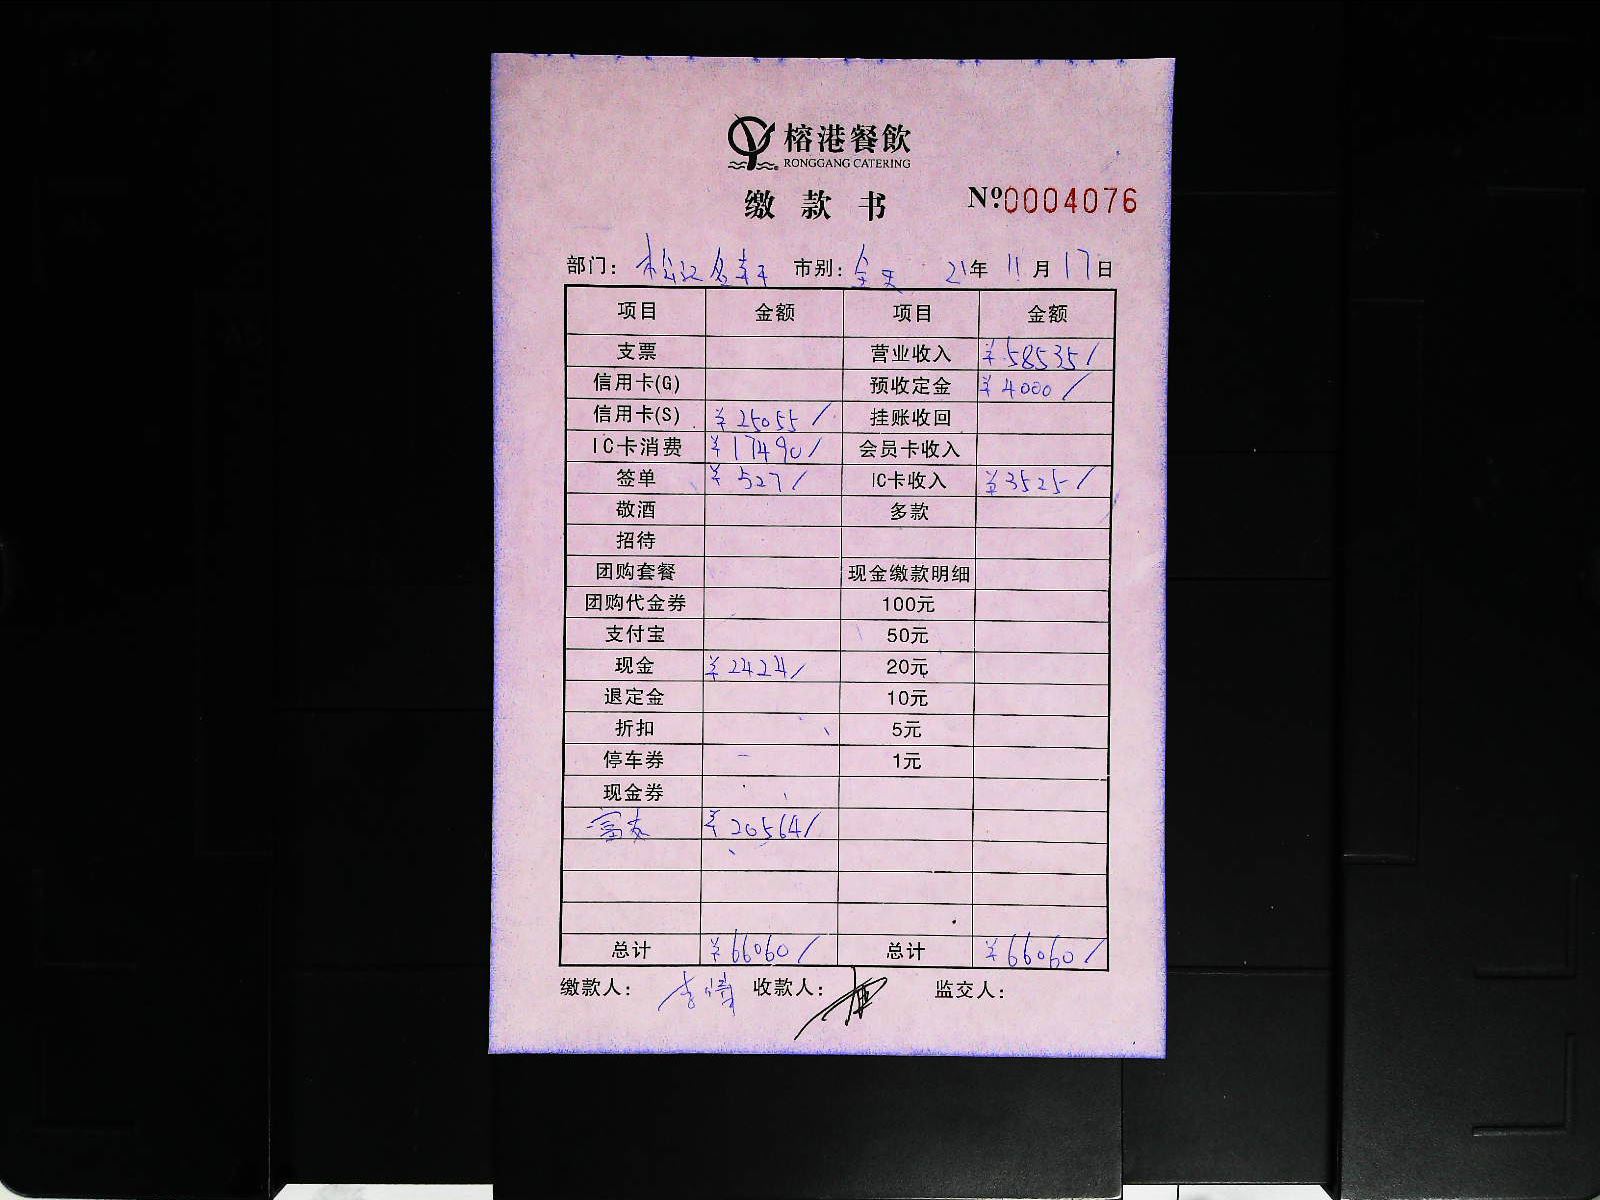 榕港餐飲
RONGGANG CATERING
缴款书 №0004076
部门: 松江名轩 市别: 全天 21年11月17日
项目 金额 项目 金额
支票 营业收入 ¥58535/
信用卡(G) 预收定金 ¥4000/
信用卡(S) ¥25055/ 挂账收回
IC卡消费 ¥17490/ 会员卡收入
签单 ¥527/ IC卡收入 ¥3525/
敬酒 多款
招待
团购套餐 现金缴款明细
团购代金券 100元
支付宝 50元
现金 ¥2424/ 20元
退定金 10元
折扣 5元
停车券 1元
现金券
富友 ¥20564/
总计 ¥66060/ 总计 ¥66060/
缴款人: 收款人: 监交人: